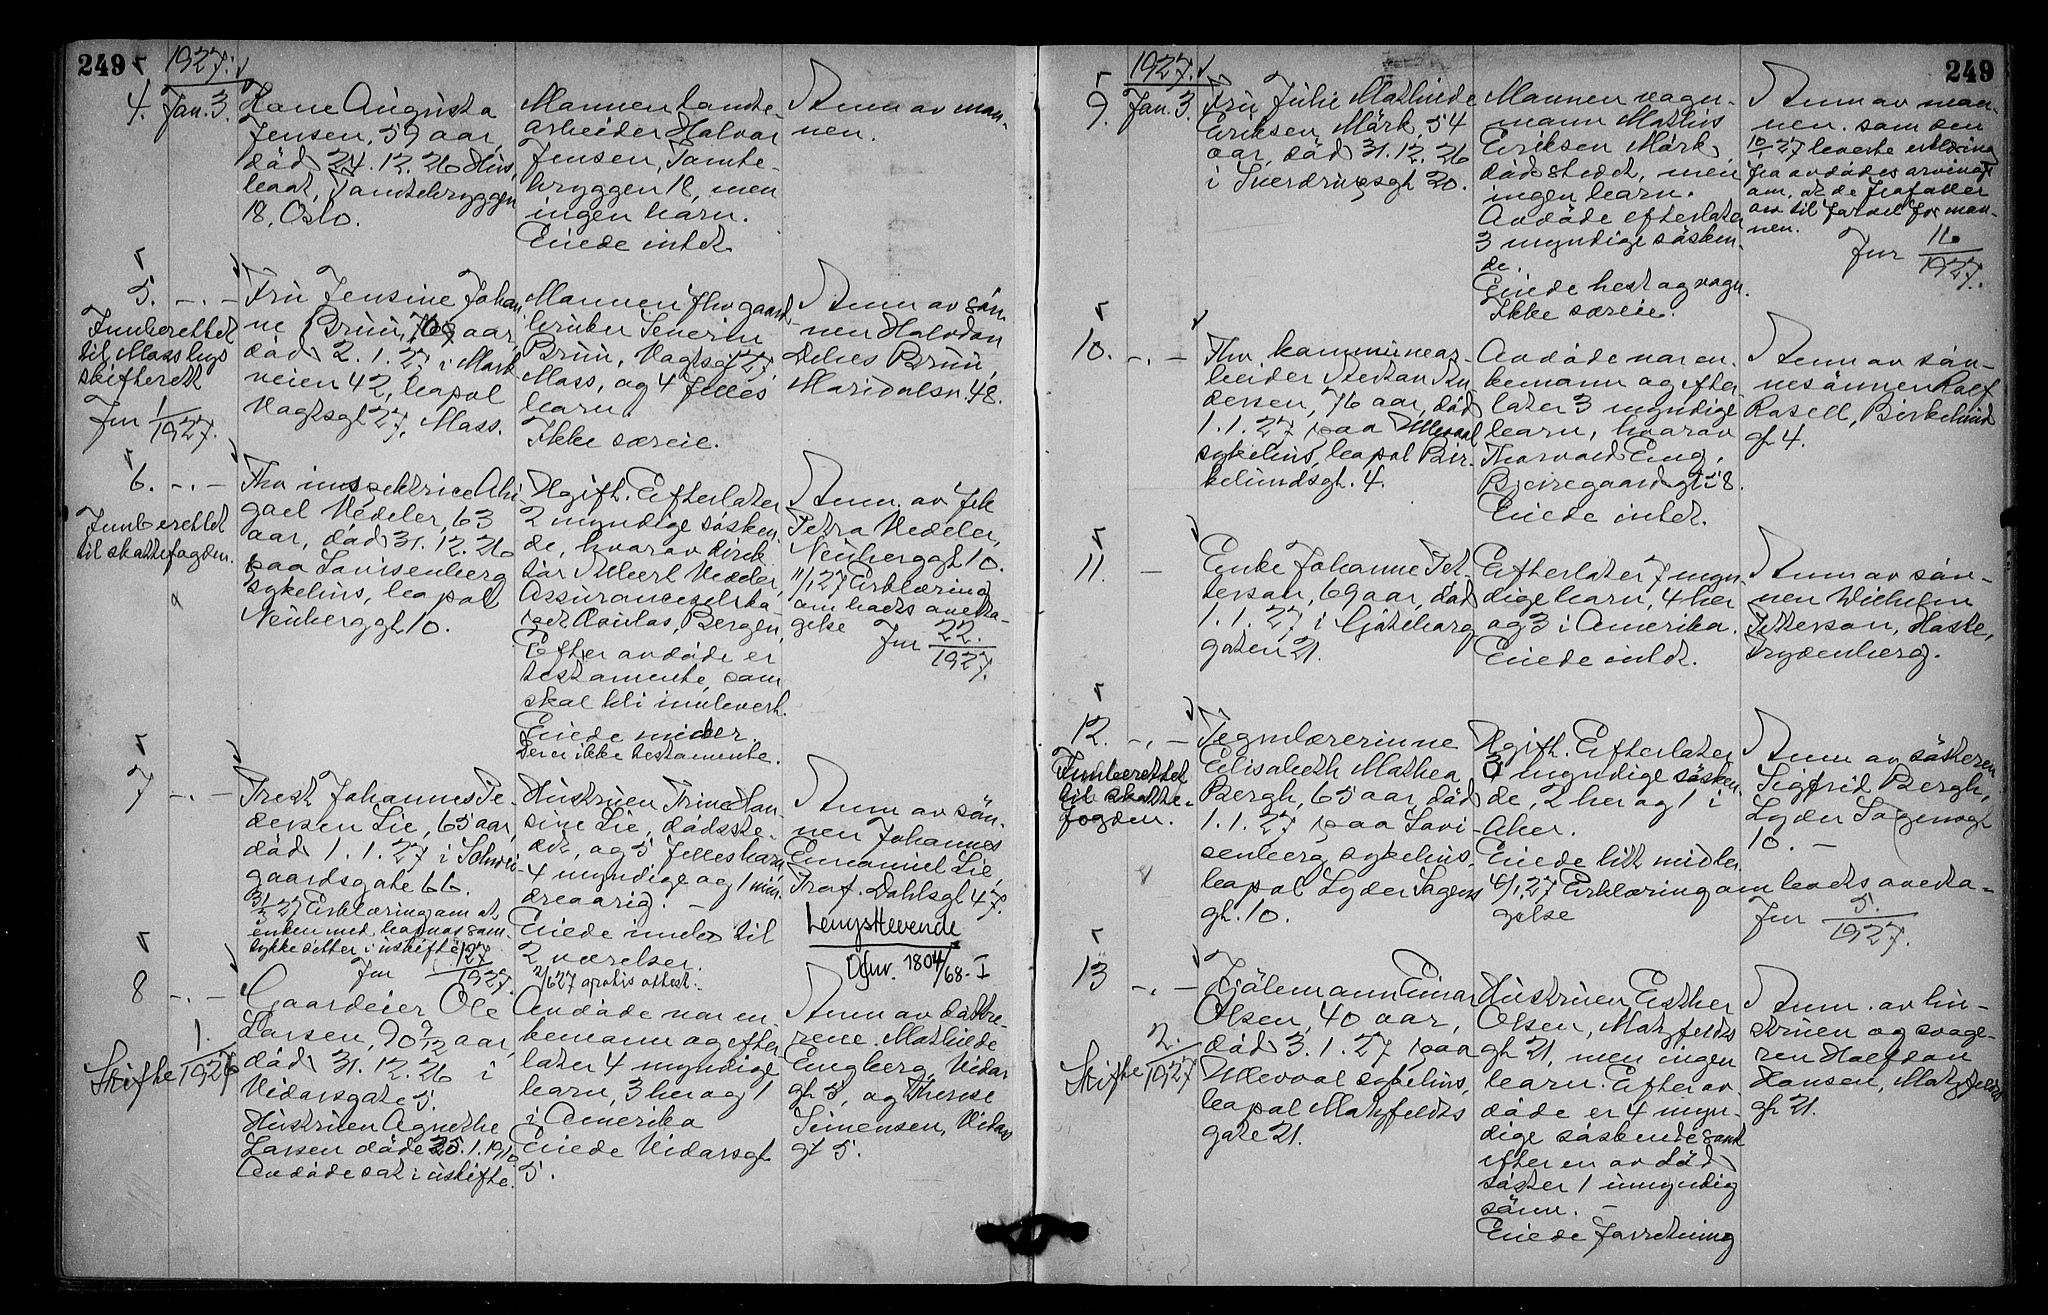 249
1927.
4. Jan. 3.
Hane Augusta
Jensen, 59 aar,
död 24.12.26 Hus,
18, Oslo.
Mannen tomte-
arbeider Halvor
Jensen, Tomte-
bryggen 18, men
ingen barn.
Eiede intet.
Anm av man-
nen.
5. -.-
Innberettet
til Moss bys
skifterett
Jnr 1/1927.
Fru Jensine Johan
ne Bruu, 69 aar,
död 2.1.27 i Mark
veien 42, bopæl
Vogtsgt 27, Moss.
Mannen fhv gaard
bruker Severin
Bruu, Vogtsgt 27
Moss, og 4 felles
barn.
Ikke særeie.
Anm av sön-
nen Halvdan
Bruu,
Maridalsv. 48.
6. -.-
Innberettet
til skattefogden.
Fhv inspektrice Abi
gael Vedeler, 63
aar, död 31.12.26
paa Lovisenberg
sykehus, bopæl
Neuberggt 10.
Ugift. Efterlater
2 myndige sösken-
de, hvorav direk
tör Albert Vedeler,
Assuranceselska-
pet Æolus, Bergen,
Efter avdöde er
testamente, som
skal bli innlevert.
Eiede midler.
Der er ikke testamente.
Anm. av frk
Petra Vedeler,
Neuberggt 10.
11/1 27 Erklæring
om boets overta-
gelse Jnr 22./1927.
7 -.-
Trest Johannes Pe-
dersen Lie, 65 aar,
död 1.1.27 i Schwei-
gaardsgate 66.
3/3 27 Erklæring om at
enken med loparvas sam-
tykke sitter i uskifte
Jnr 127/1927.
Hustruen Trine Han-
sine Lie, dödsste-
det, og 5 felles barn
4 myndige og 1 min-
dreaarig. -
Eiede innbo til
2 værelser.
2/6 27 gratis attest.
Anm av sön-
nen Johannes
Emanuel Lie,
Prof. Dahlsgt 47.
Lengstlevende
Dfnr. 1804/68-I
8 -.-
Skifte 1./1927
Gaardeier Ole
Larsen, 90 9/12 aar,
död 31.12.26 i
Vidarsgate 5.
Hustruen Agnethe
Larsen döde 25.1.1910
Avdöde sat i uskifte.
Avdöde var en
kemann og efter
later 4 myndige
barn, 3 her og 1
i Amerika
Eiede Vidarsgt
5.
Anm av dattre-
rene. Mathilde
Engberg, Vidar
gt 5, og Therese
Simensen, Vidar
gt 5.
249
1927.
9. Jan. 3
Fru Julie Mathilde
Eriksen Mörk, 54
aar, död 31.12.26
i Sverdrupsgt 20.
Mannen vogn-
mann Mathis
Eriksen Mörk,
dödsstedet, men
ingen barn.
Avdöde efterlater
3 myndige sösken-
de.
Eiede hest og vogn.
Ikke særeie.
Anm av man-
nen. som den
10/1 27 leverte erklæring
fra avdödes arvinger
om, at de frafaller
arv til fordel for man-
nen.
Jnr 16/1927.
10. -.-
Fhv kommunear-
beider Stefan An-
dersen, 76 aar, död
1.1.27 paa Ullevaal
sykehus, bopæl Bir-
kelundsgt. 4.
Avdöde var en-
kemann og efter
later 3 myndige
barn, hvorav
Thorvald Eng,
Bjerregaardsgt 58.
Eiede intet.
Anm av sön-
nesönnen Rolf
Rosell, Birkelund
gt 4.
11. -
Enke Johanne Pet-
terson, 69 aar, död
1.1.27 i Göteborg
gaten 21.
Efterlater 7 myn-
dige barn, 4 her
og 3 i Amerika.
Eiede intet.
Anm av sön-
nen Wilhelm
Petterson, Hasle,
Frydenberg.
12. -.-
Innberettet
til skatte-
fogden.
Tegnlærerinne
Elisabeth Mathea
Bergh, 65 aar, död
1.1.27 paa Lovi-
senberg sykehus,
bopæl Lyder Sagens
gt. 10.
Ugift. Efterlater
3 myndige sösken-
de, 2 her og 1 i
Aker.
Eiede litt midler
4/1 27 Erklæring om boets overta-
gelse
Jnr 5./1927.
Anm av sösteren
Sigfrid Bergh,
Lyder Sagensgt
10. -
13 -.-
Skifte 2./1927
Kjölemann Einar
Olsen, 40 aar,
död 3.1.27 paa
Ullevaal sykehus,
bopæl Motzfeldts
gate 21.
Hustruen Esther
Olsen, Motzfeldts
gt 21, men ingen
barn. Efter av
döde er 4 myn-
dige söskende samt
efter en av död
söster 1 umyndig
sönn. -
Eiede forretning
Anm. av hu-
struen og svoge-
ren Halfdan
Hansen, Motzfeldts
gt 21.